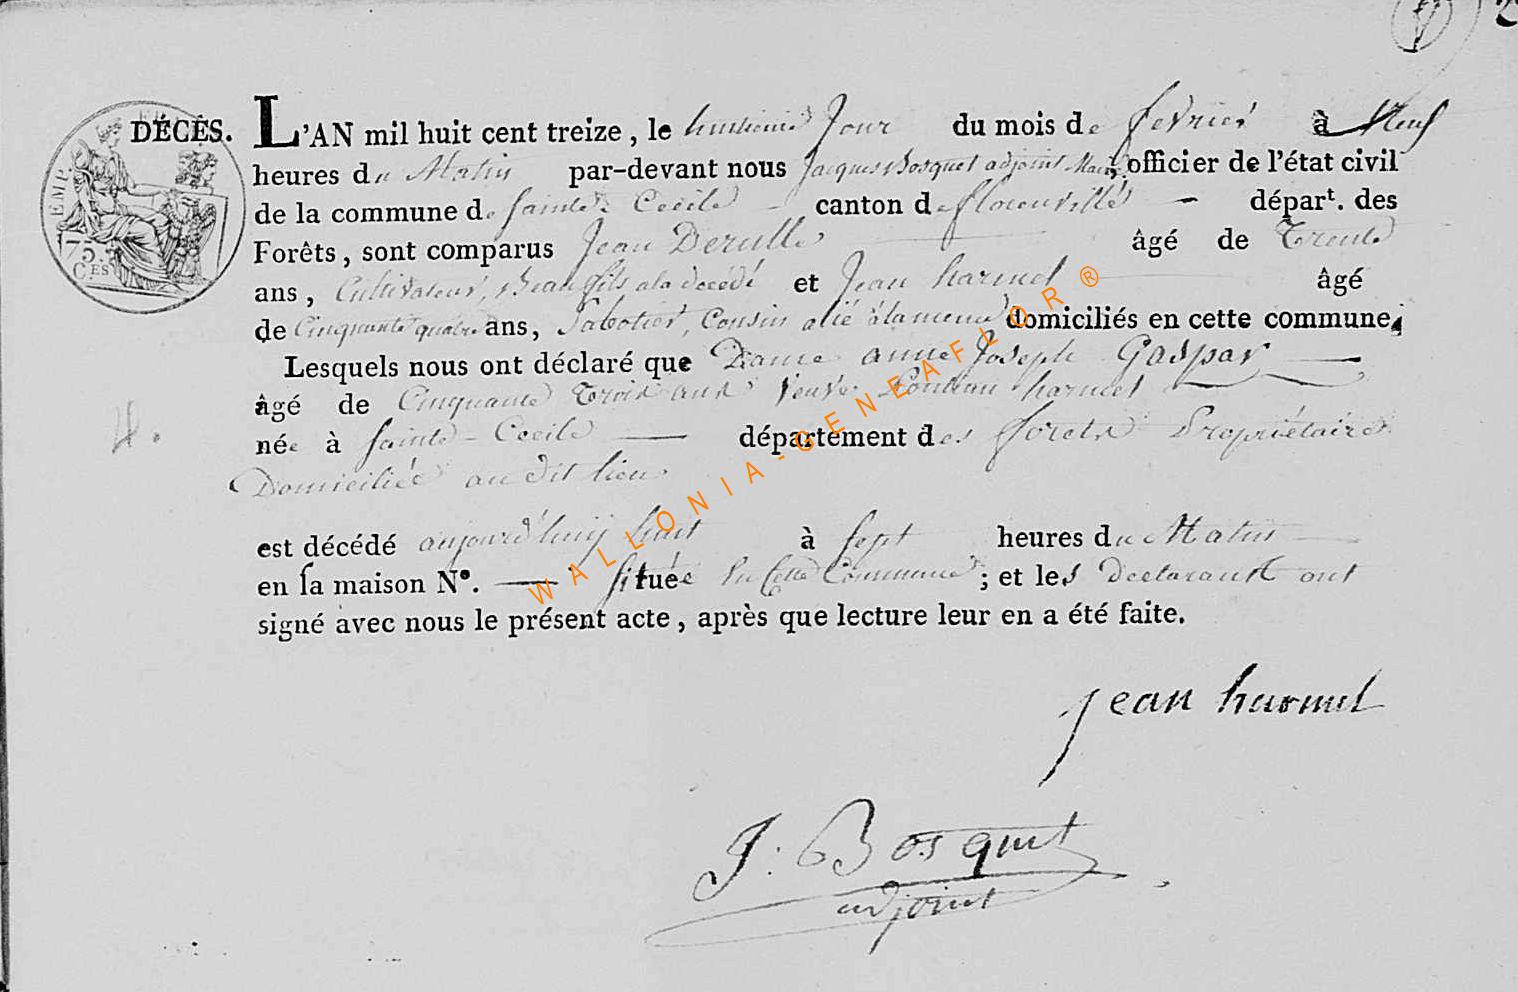 DÉCÈS. L'AN mil huit cent treize, le huitieme Jour du mois de fevrier à Neuf
EMP.
75.
C.ES
heures du Matin par-devant nous Jacques Bosquet adjoint Maire, officier de l'état civil
de la commune de Sainte Cecile canton de florenville départ. des
Forêts, sont comparus Jean Derulle âgé de Trente
ans, Cultivateur, Beau fils a la decédé et Jean harmel âgé
de Cinquante quatre ans, Sabotier, Cousin alié à la meme domiciliés en cette commune,
Lesquels nous ont déclaré que Dame anne Joseph Gaspar
âgé de Cinquante Trois ans veuve harmel
4.
née à Sainte-Cecile département des forets Propriétaire
Domiciliée au dit lieu
est décédé aujourd'huy huit à sept heures du Matin
en sa maison N°. située en Cette Commune; et les Declarants ont
signé avec nous le présent acte, après que lecture leur en a été faite.
jean harmel
J: Bosquet
adjoint
WALLONIA-GENEAFLOR®